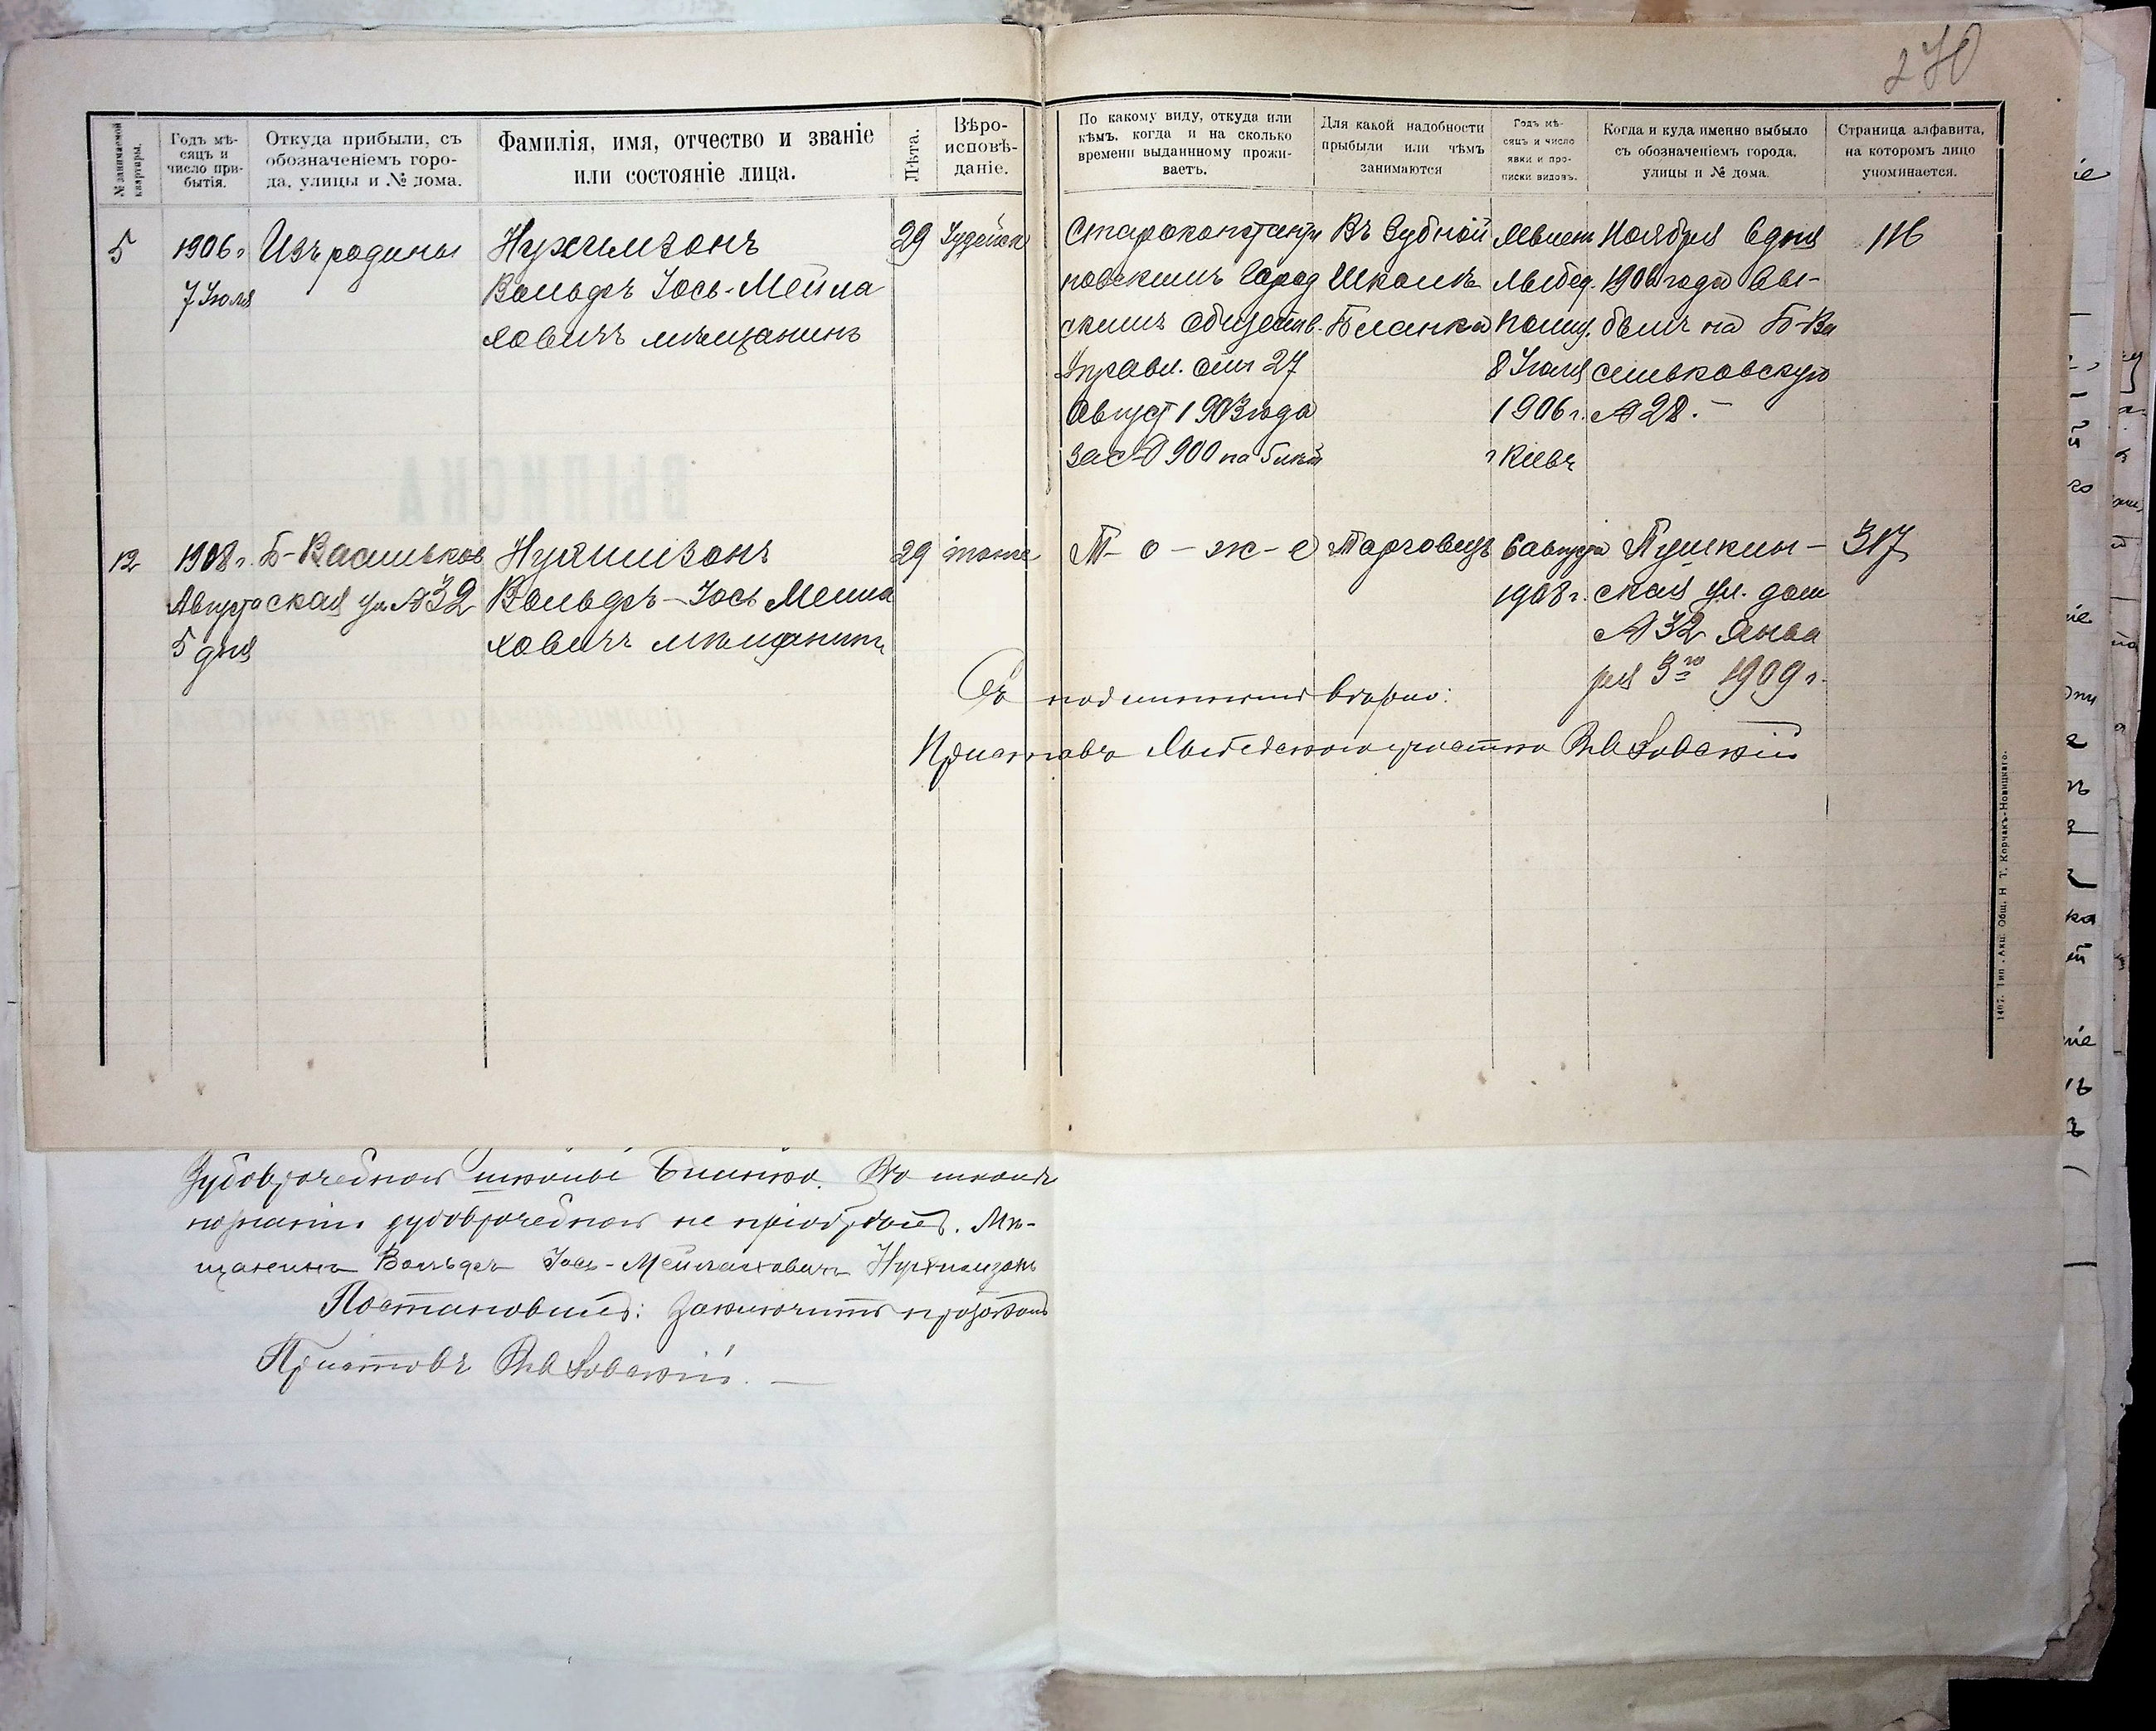 270
№ занимаемой квартиры.
Годъ мѣ-
сяцъ и
число при-
бытія.
Откуда прибыли, съ
обозначеніемъ горо-
да, улицы и № дома.
Фамилія, имя, отчество и званіе
или состояніе лица.
Лѣта.
Вѣро-
исповѣ-
даніе.
По какому виду, откуда или
кѣмъ, когда и на сколько
времени выданнному прожи-
ваетъ.
Для какой надобности
прибыли или чѣмъ
занимаются
Годъ мѣ-
сяцъ и число
явки и про-
писки видовъ.
Когда и куда именно выбыло
съ обозначеніемъ города,
улицы и № дома.
Страница алфавита,
на которомъ лицо
упоминается.
5
1906 г.
7 Іюля
Изъ родины
Нухимзонъ
Вольфъ Іось-Мейла
ховичъ мѣщанинъ
29
Іудейск
Староконстанти
новскимъ Город
скимъ обществ.
Управл. отъ 27
Август 1903 года
за № 900 на
Въ Зубной
Школѣ
Бланка
Лыбед.
полиц.
8 Іюля
1906 г.
г Кіевъ
Ноября 6 дня
1906 года вы-
былъ на Б-Ва
сильковскую
№ 28. –
116
12
1908 г.
Августа
5 дня
Б-Васильков
ская ул № 32
Нухимзонъ
Вольфъ-Іось Мейла
ховичъ мѣщанинъ
29
тоже
Т-о-ж-е
Торговецъ
6 августа
1908 г.
Пушкин-
ская ул. дом
№ 32 Янва
ря 3го 1909 г.
317
Съ подлиннымъ вѣрно:
Приставъ Лыбедского участка
1467. Тип. Акц. Общ. Н. Т. Корчакъ-Новицкаго.
Зубоврачебной школы Бланка. Въ школѣ
познанія зубоврачебной не пріобрѣлъ. Мѣ-
щанинъ Вольфъ Іось-Мейлаховичъ Нухимзонъ
Постановилъ: Заключить
Приставъ